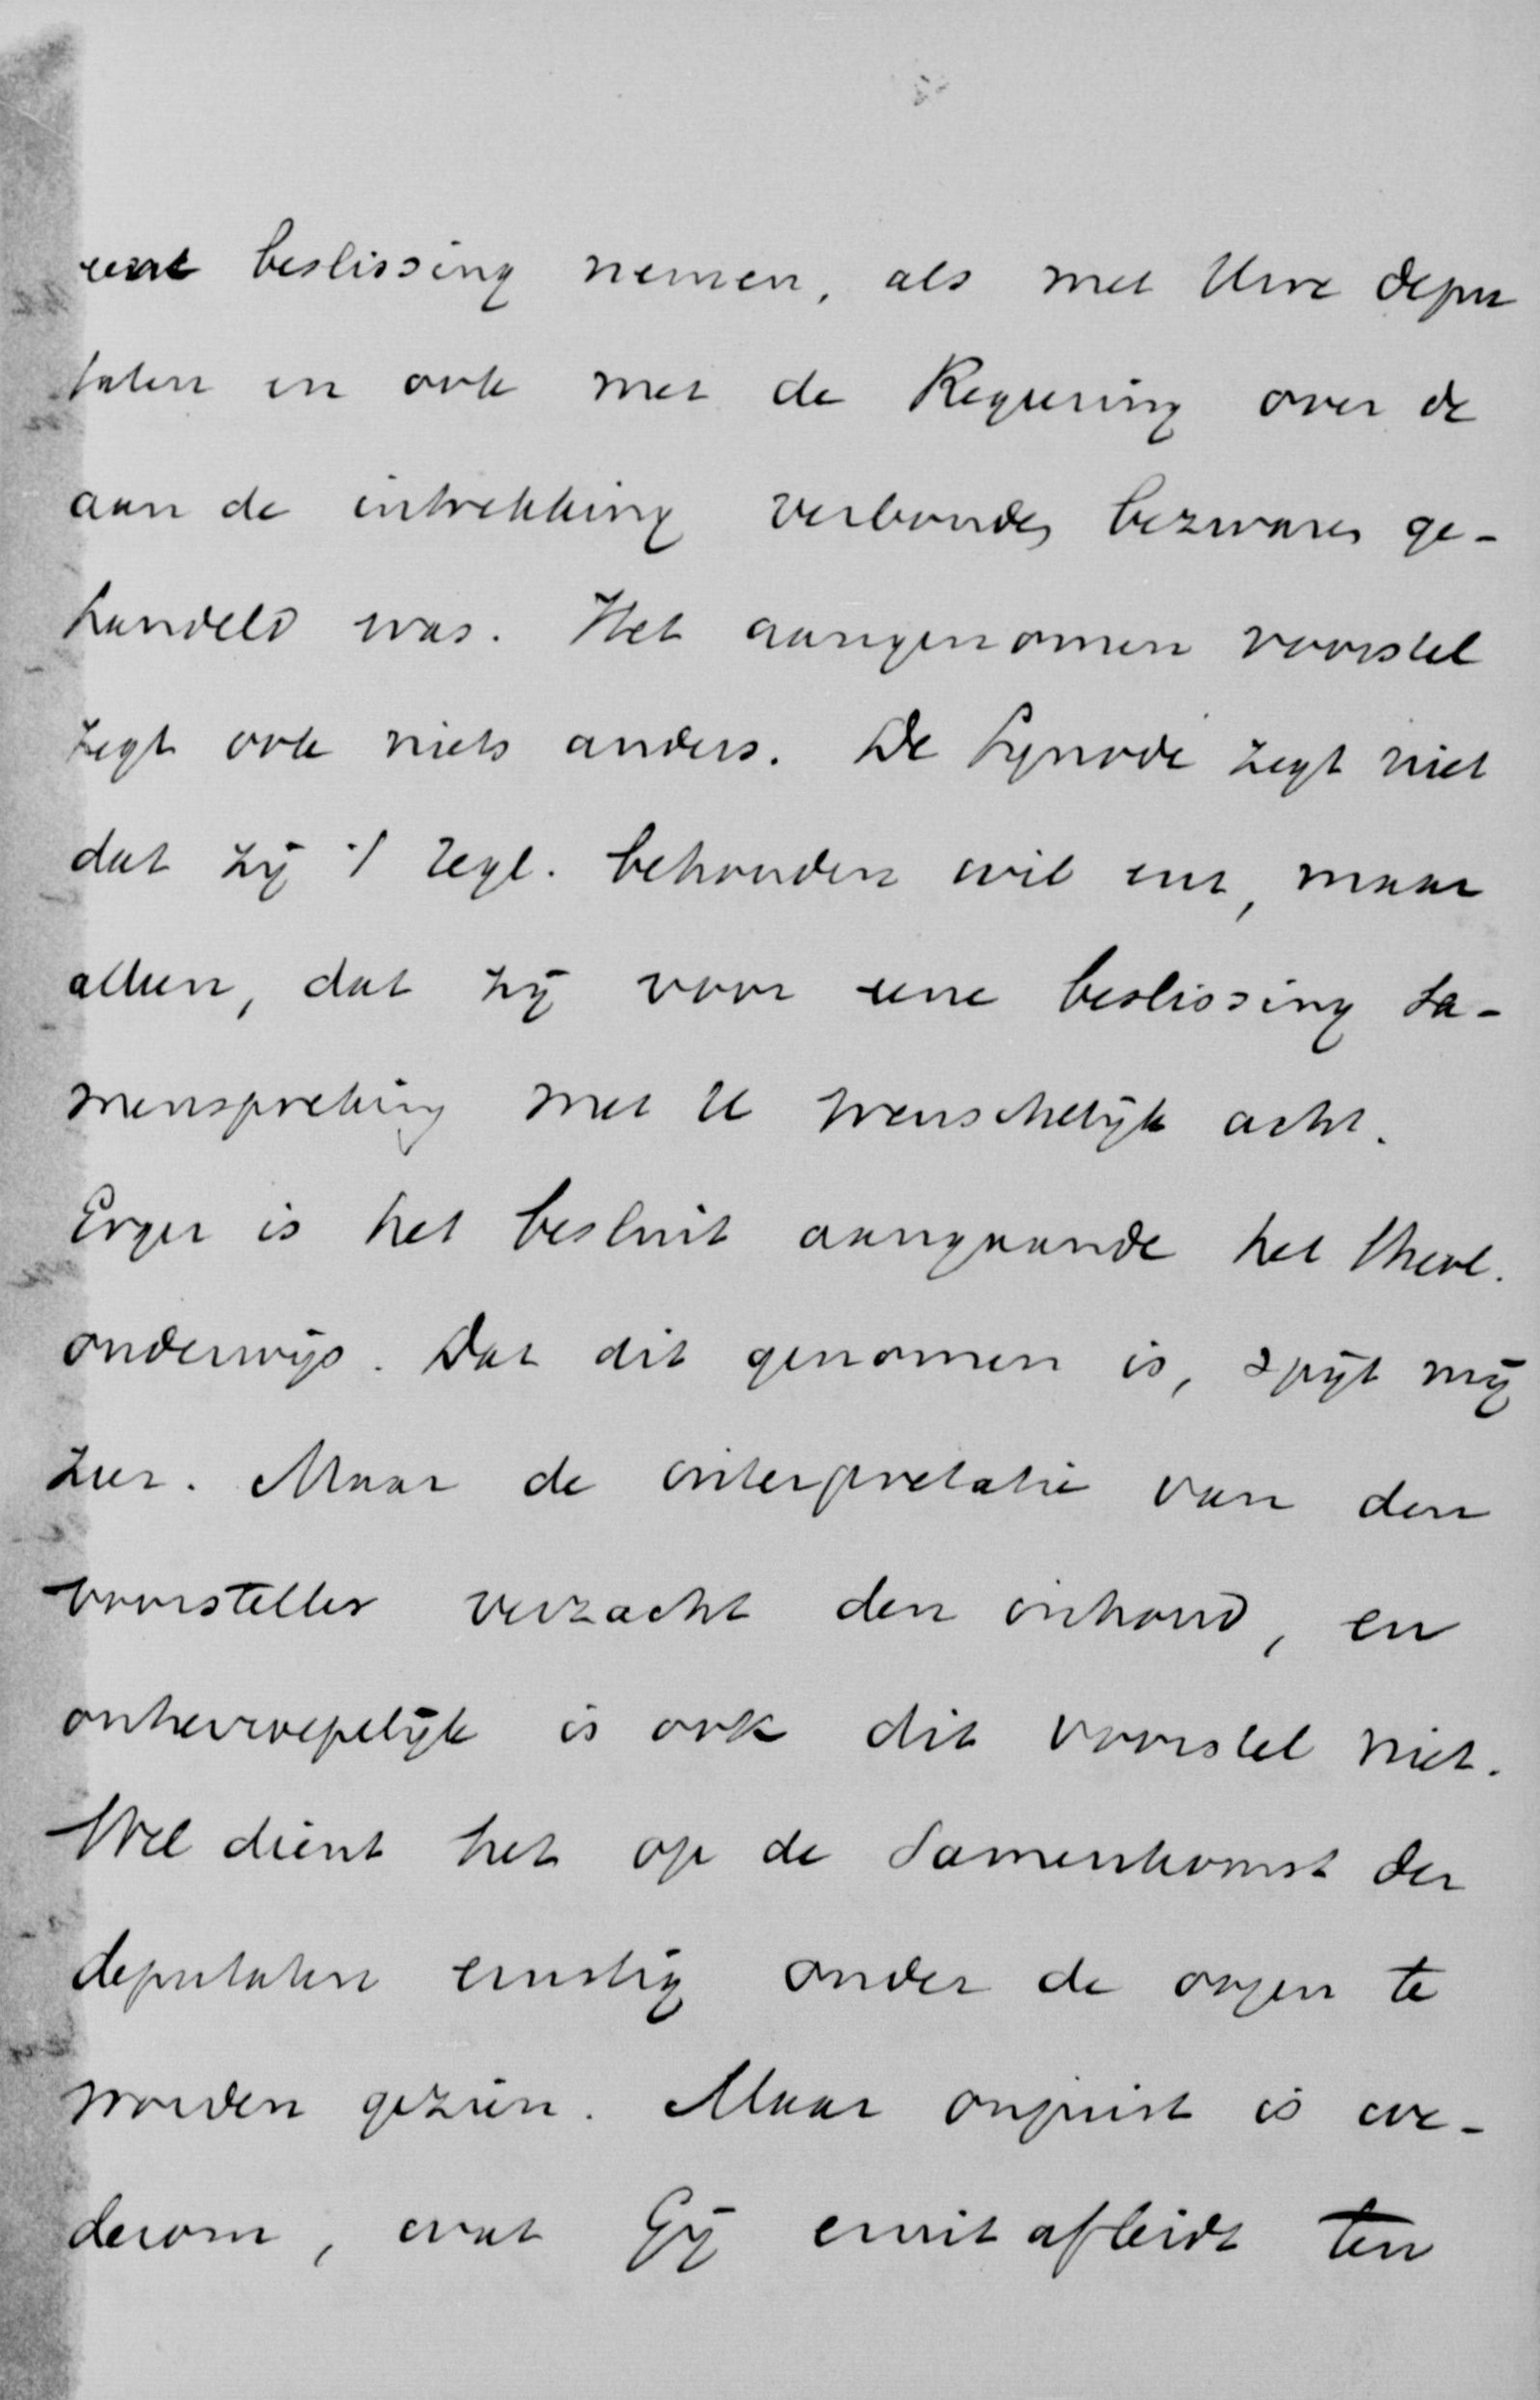 eene beslissing nemen, als met Uwe depu
taten en ook met de Regeering over de
aan de intrekking verbonden bezwaren ge-
handeld was. Het aangenomen voorstel
zegt ook niets anders. De Synode zegt niet
dat zij 't regl. behouden wil enz, maar
alleen, dat zij voor eene beslissing sa-
menspreking met U wenschelijk acht.
Erger is het besluit aangaande het theol.
onderwijs. Dat dit genomen is, spijt mij
zeer. Maar de interpretatie van den
voorsteller verzacht den inhoud, en
onherroepelijk is ook dit voorstel niet.
Wel dient het op de samenkomst der
deputaten ernstig onder de oogen te
worden gezien. Maar onjuist is we-
derom, wat Gij eruit afleidt ten